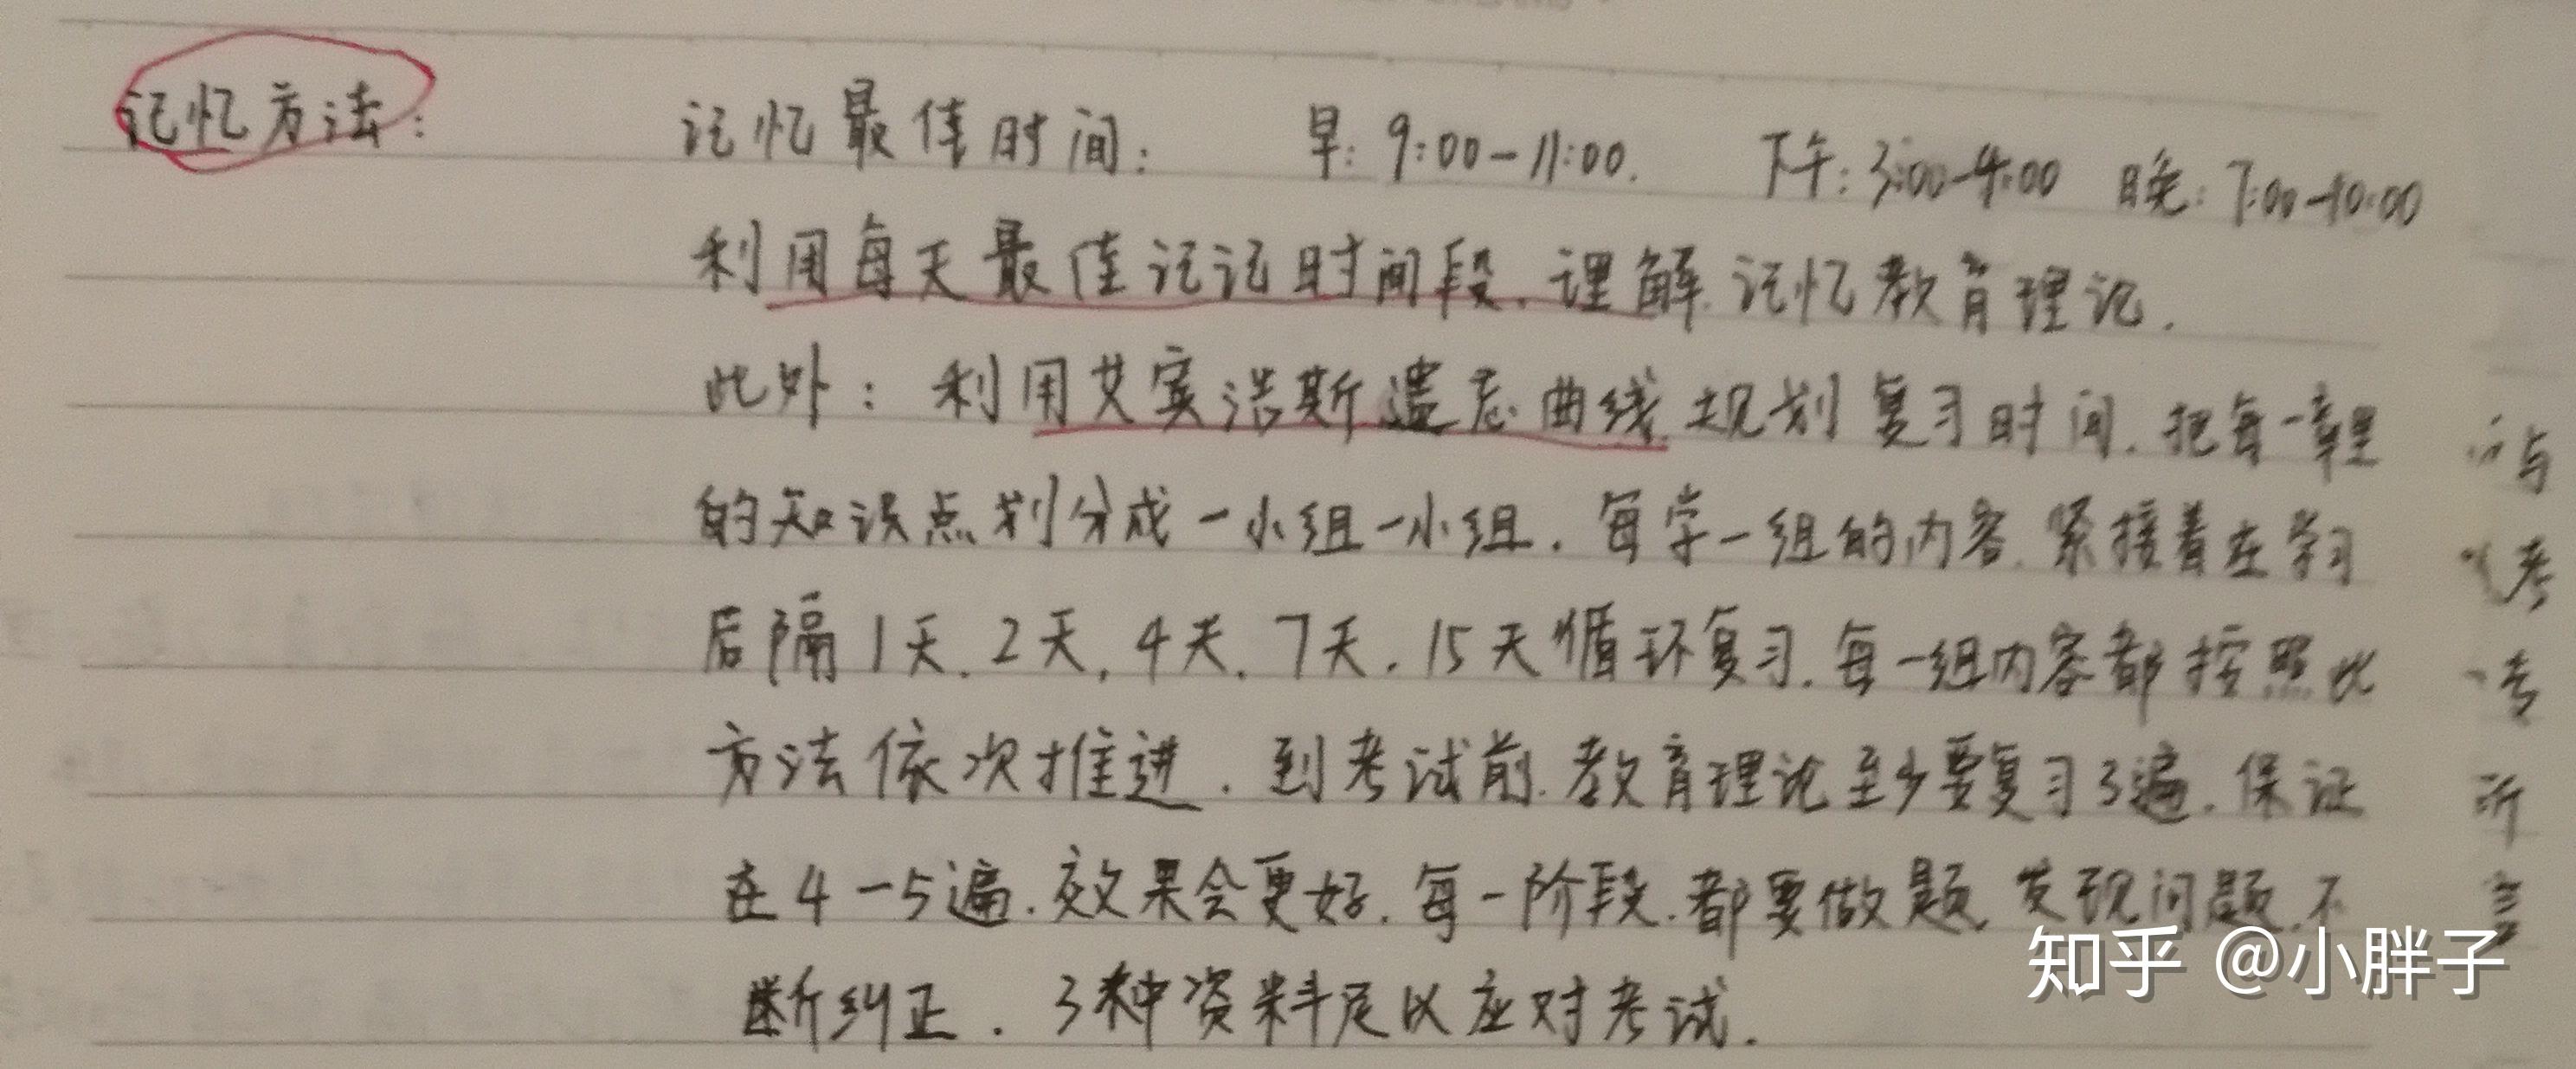 记忆方法: 记忆最佳时间: 早: 9:00-11:00. 下午: 3:00-4:00 晚: 7:00-10:00
利用每天最佳记记时间段, 理解.记忆教育理论.
此外: 利用艾宾浩斯遗忘曲线规划复习时间, 把每一章里
的知识点划分成一小组一小组. 每学一组的内容. 紧接着在学习
后隔1天. 2天, 4天. 7天. 15天循环复习. 每一组内容都按照此
方法依次推进. 到考试前. 教育理论至少要复习3遍. 保证
在4-5遍. 效果会更好. 每一阶段. 都要做题, 发现问题. 不
断纠正. 3种资料足以应对考试.
与
考
考
所
言
知乎 @小胖子